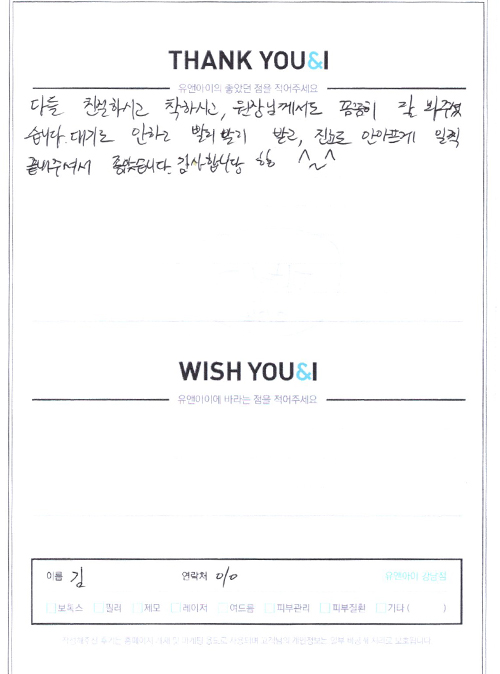 THANK YOU&I
유앤아이의 좋았던 점을 적어주세요
다들 친절하시고 착하시고, 원장님께서도 꼼꼼히 잘 봐주셨
습니다. 대기도 안하고 빨리빨리 받고, 진료도 안아프게 일찍
끝내주셔서 좋았습니다. 감사합니다 ^~^
WISH YOU&I
유앤아이에 바라는 점을 적어주세요
이름 김 연락처 010 유앤아이 강남점
보톡스 필러 제모 레이저 여드름 피부관리 피부질환 기타 ( )